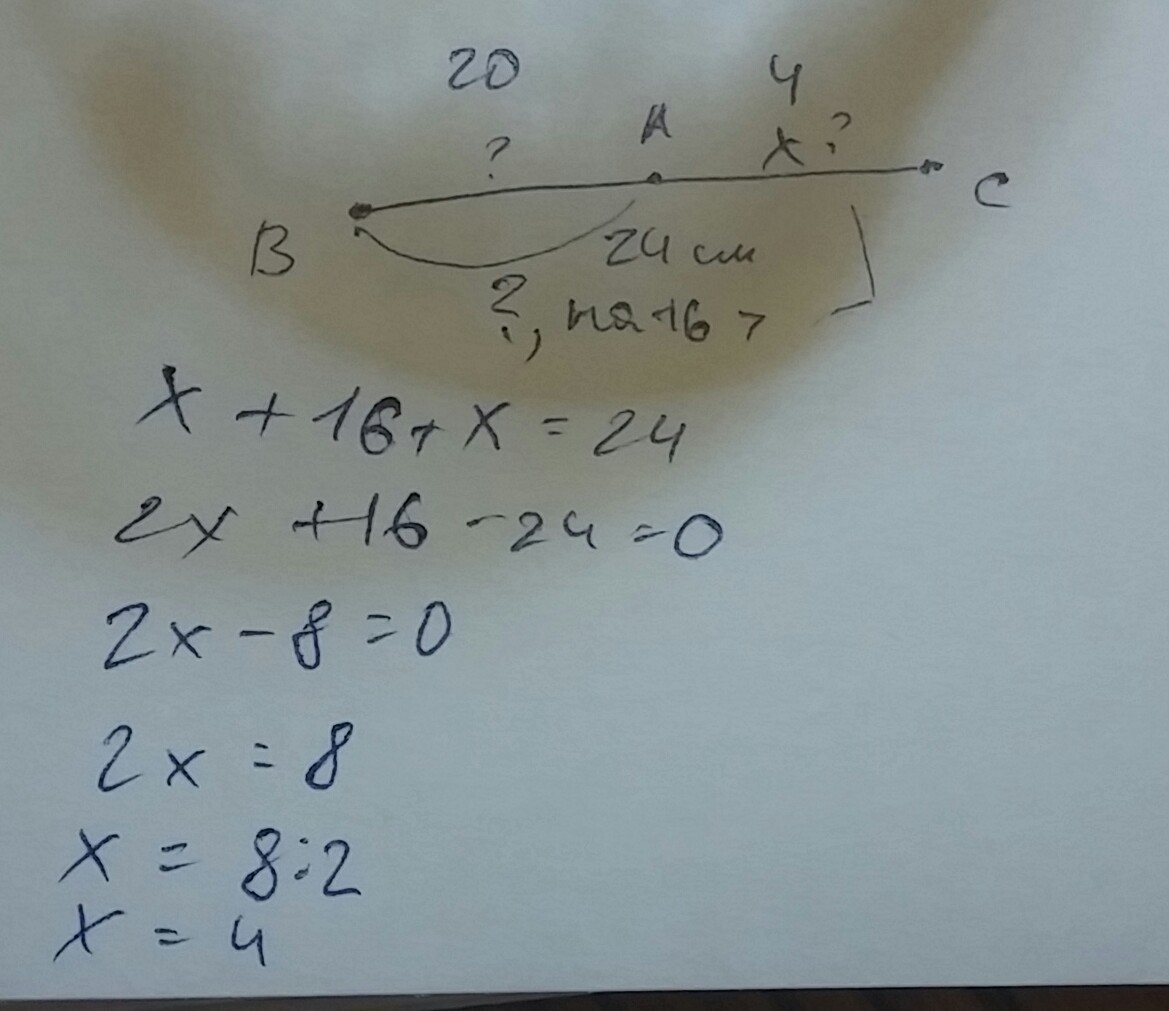 20 4
? А х?
В С
24 см
?, на 16 >
х + 16 + х = 24
2х + 16 - 24 = 0
2х - 8 = 0
2х = 8
х = 8:2
х = 4